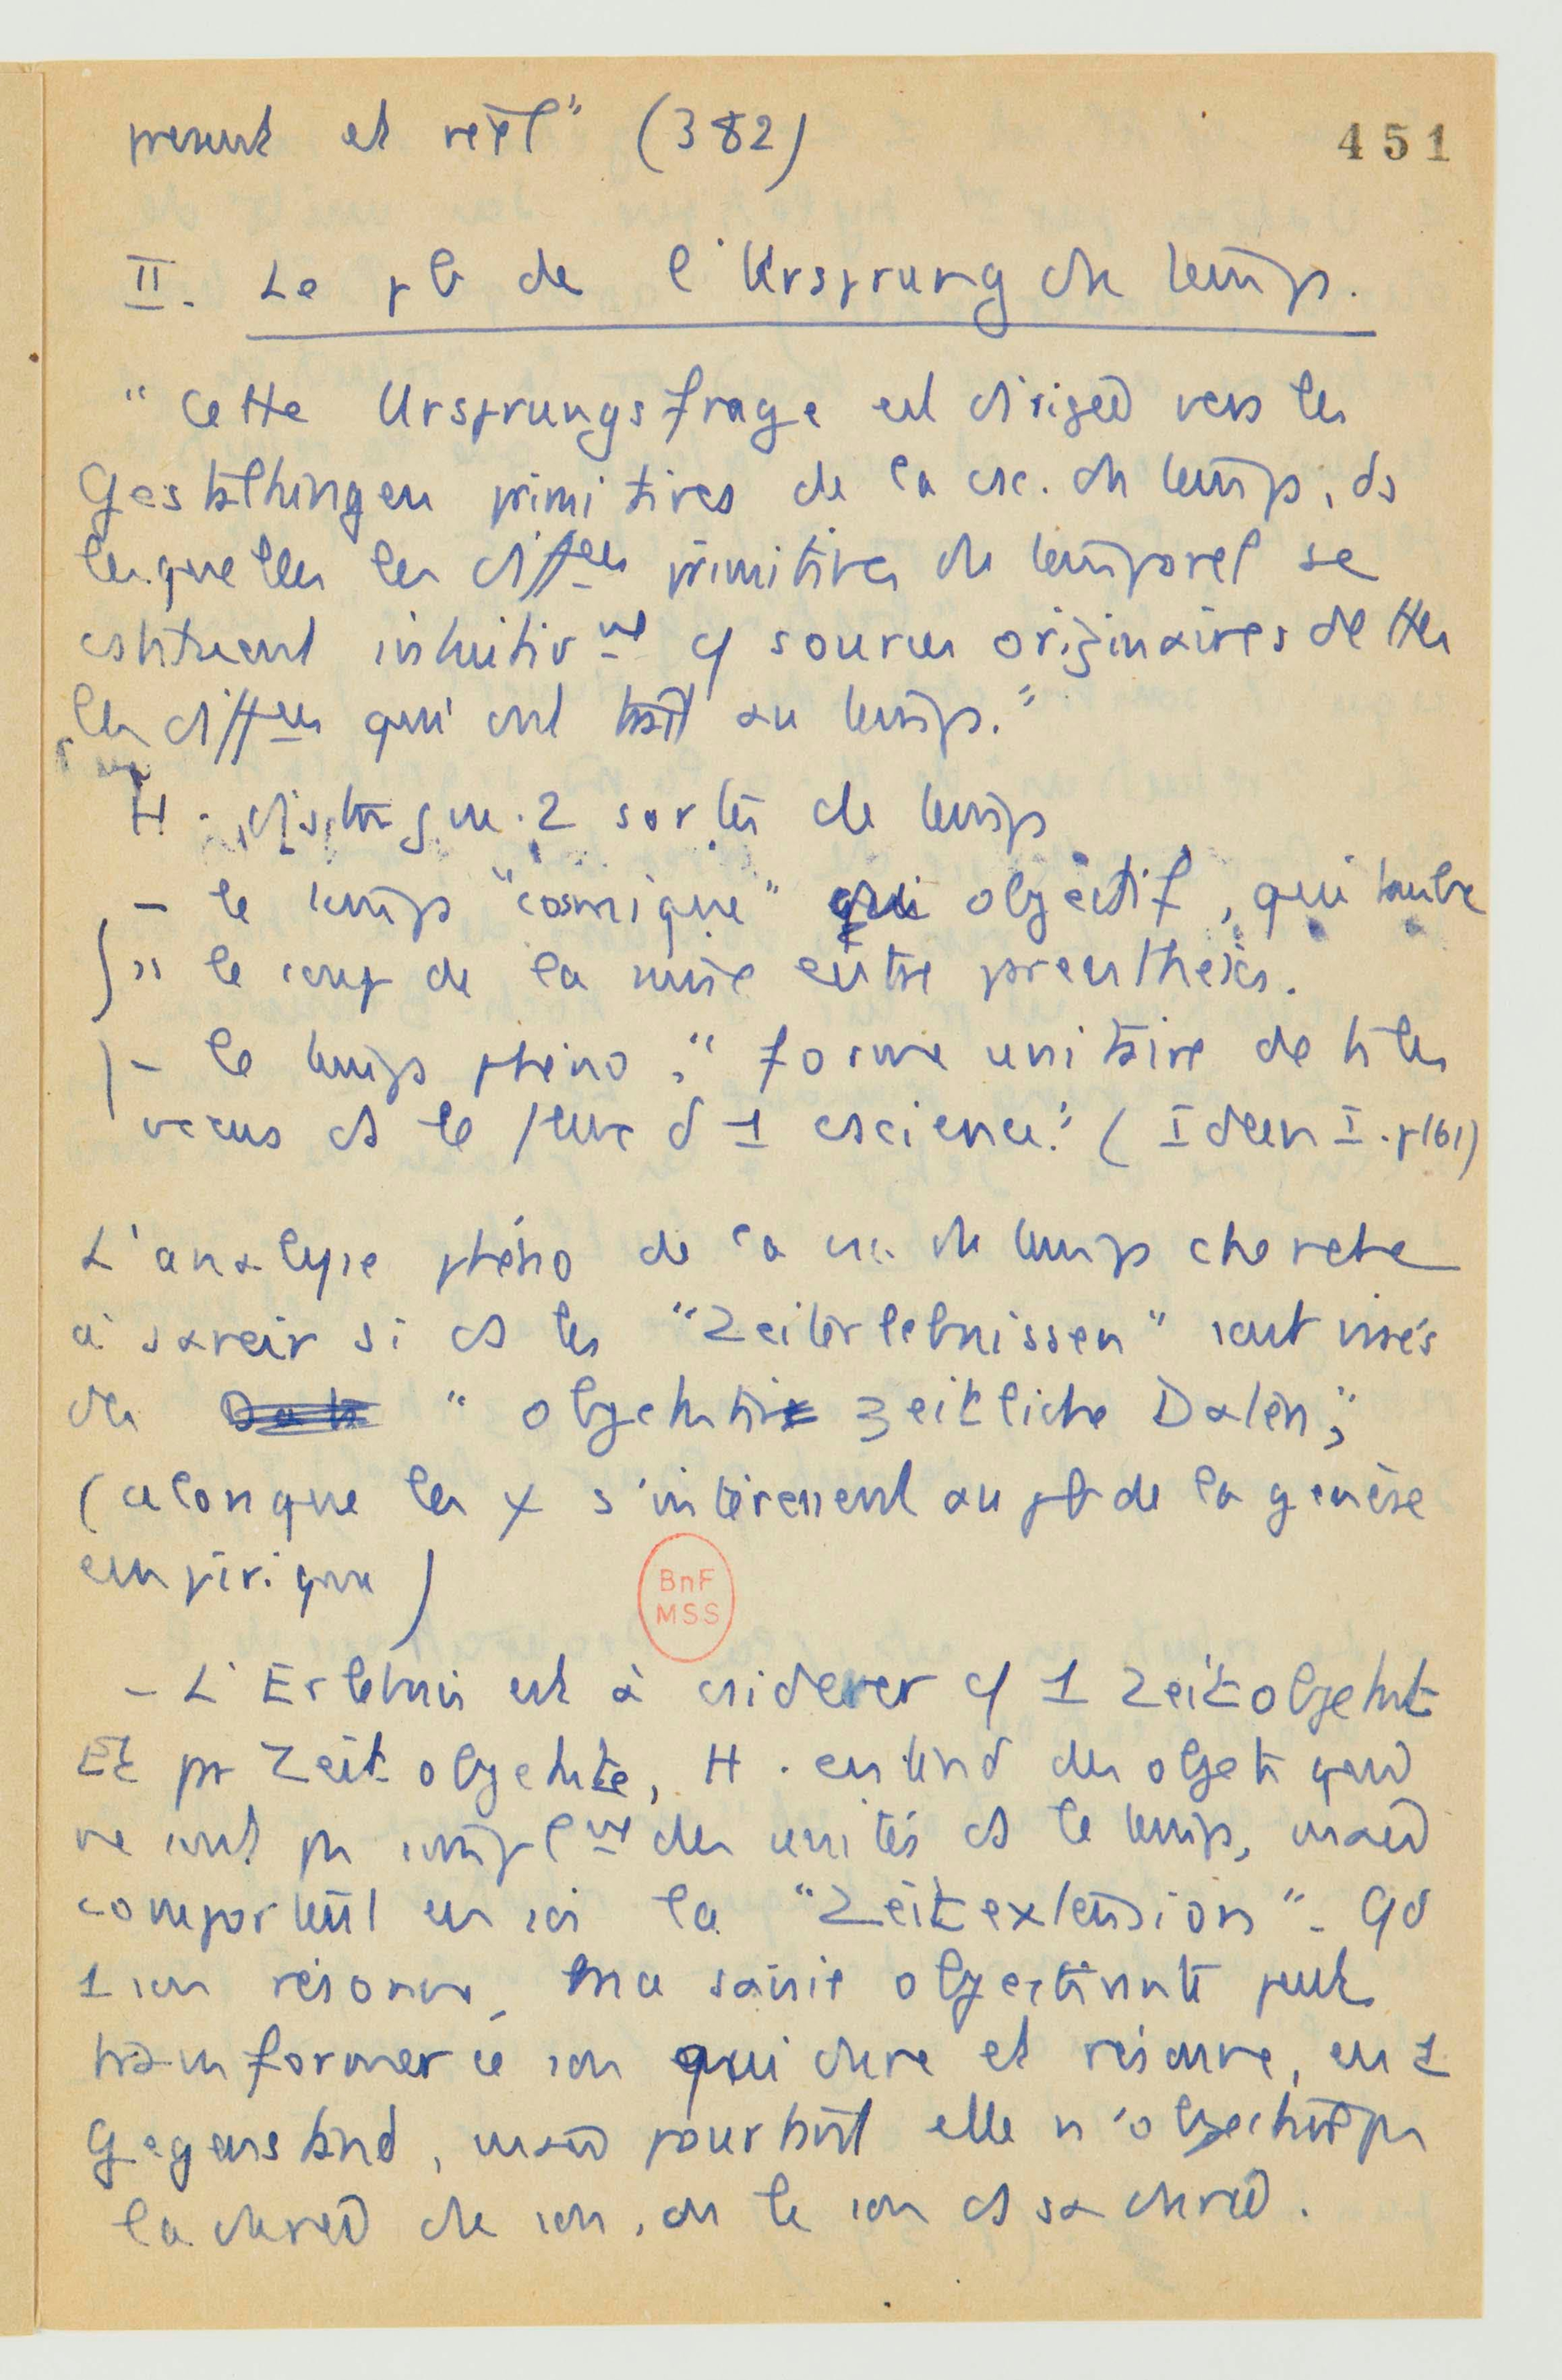 present et réel" (382)
451
II. Le pb de l'Ursprung du temps.
"Cette Ursprungsfrage est dirigée vers les
Gestaltungen primitives de la csc. du temps, ds
lesquelles les diffces primitives du temporel se
cstituent intuitivmt cf sources originaires de ttes
les diffces qui ont trait au temps."
H. distingue 2 sortes de temps
- le temps "cosmique" objectif, qui tombe
ss le coup de la mise entre parenthèses.
- le temps phéno: "forme unitaire de ts les
vécus ds le flux d 1 cscience." (Ideen I. p161)
L'analyse phéno de la csc. du temps cherche
à savoir si ds les "Zeiterlebnissen" sont visés
des "objektiv zeitliche Daten,"
(alors que les ψ s'intéressent au pb de la genèse
empirique)
BnF
MSS
- L'Erlebnis est à csidérer cf 1 Zeitobjekt
Et pr Zeitobjekte, H. entend des objets qui
ne sont pas simplmt des unités ds le temps, mais
comportent en soi la "Zeitextension". Qd
1 son résonne, ma saisie objectivante peut
transformer ce son qui dure et résonne, en 1
Gegenstand, mais pourtant elle n'objective pas
la durée du son, ou le son ds sa durée.